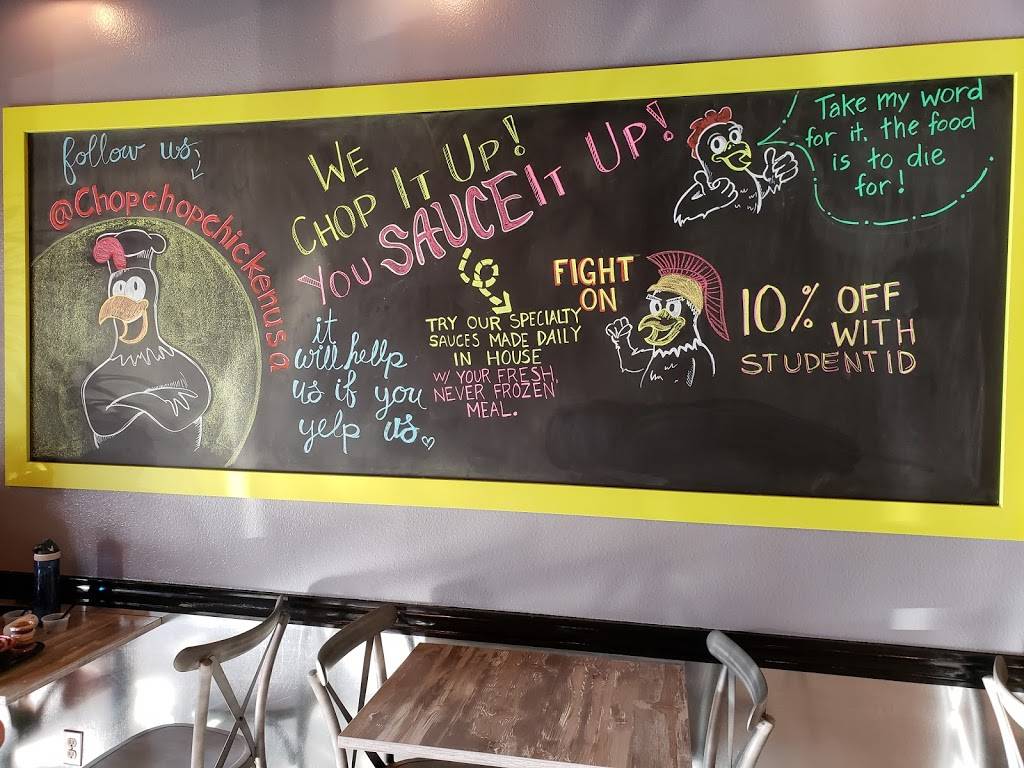 follow us
@Chopchopchickenusa
WE
CHOP IT UP!
YOU SAUCE IT UP!
it
will hellp
us if you
yelp us
TRY OUR SPECIALTY
SAUCES MADE DAILY
IN HOUSE
W/ YOUR FRESH,
NEVER FROZEN
MEAL.
FIGHT
ON
10% OFF
WITH
STUDENT ID
Take my word
for it. the food
is to die
for!